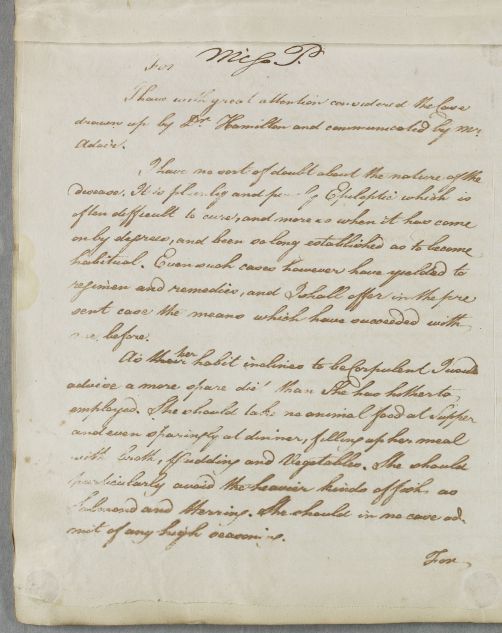 For Miss P.
I have with great attention considered the Case
drawn up by Dr. Hamilton and communicated by Mr.
Adair.
I have no sort of doubt about the nature of the
disease. It is plainly and purely Epileptic which is
often difficult to cure, and more so when it has come
on by degrees, and been so long established as to become
habitual. Even such cases however have yielded to
regimen and remedies, and I shall offer in the pre
sent case the means which have succeeded with
me, before.
As their her habit inclines to be Corpulent I would
advise a more spare diet than She has hitherto
employed. She should take no animal food at Supper
and even sparingly at dinner, filling up her meal
with broth, Pudding and Vegetables. She should
particularly avoid the heavier kinds of fish, as
Salmond and Herring. She should in no case ad-
mit of any high seasoning.
For